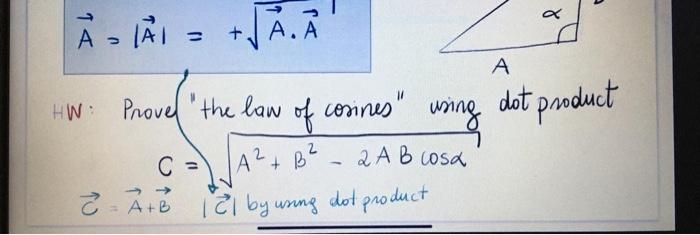 A⃗ = |A⃗| = +√A⃗.A⃗
α
A
HW: Prove "the law of cosines" using dot product
C = √A² + B² - 2AB cosα
C⃗ = A⃗+B⃗ |C⃗| by using dot product